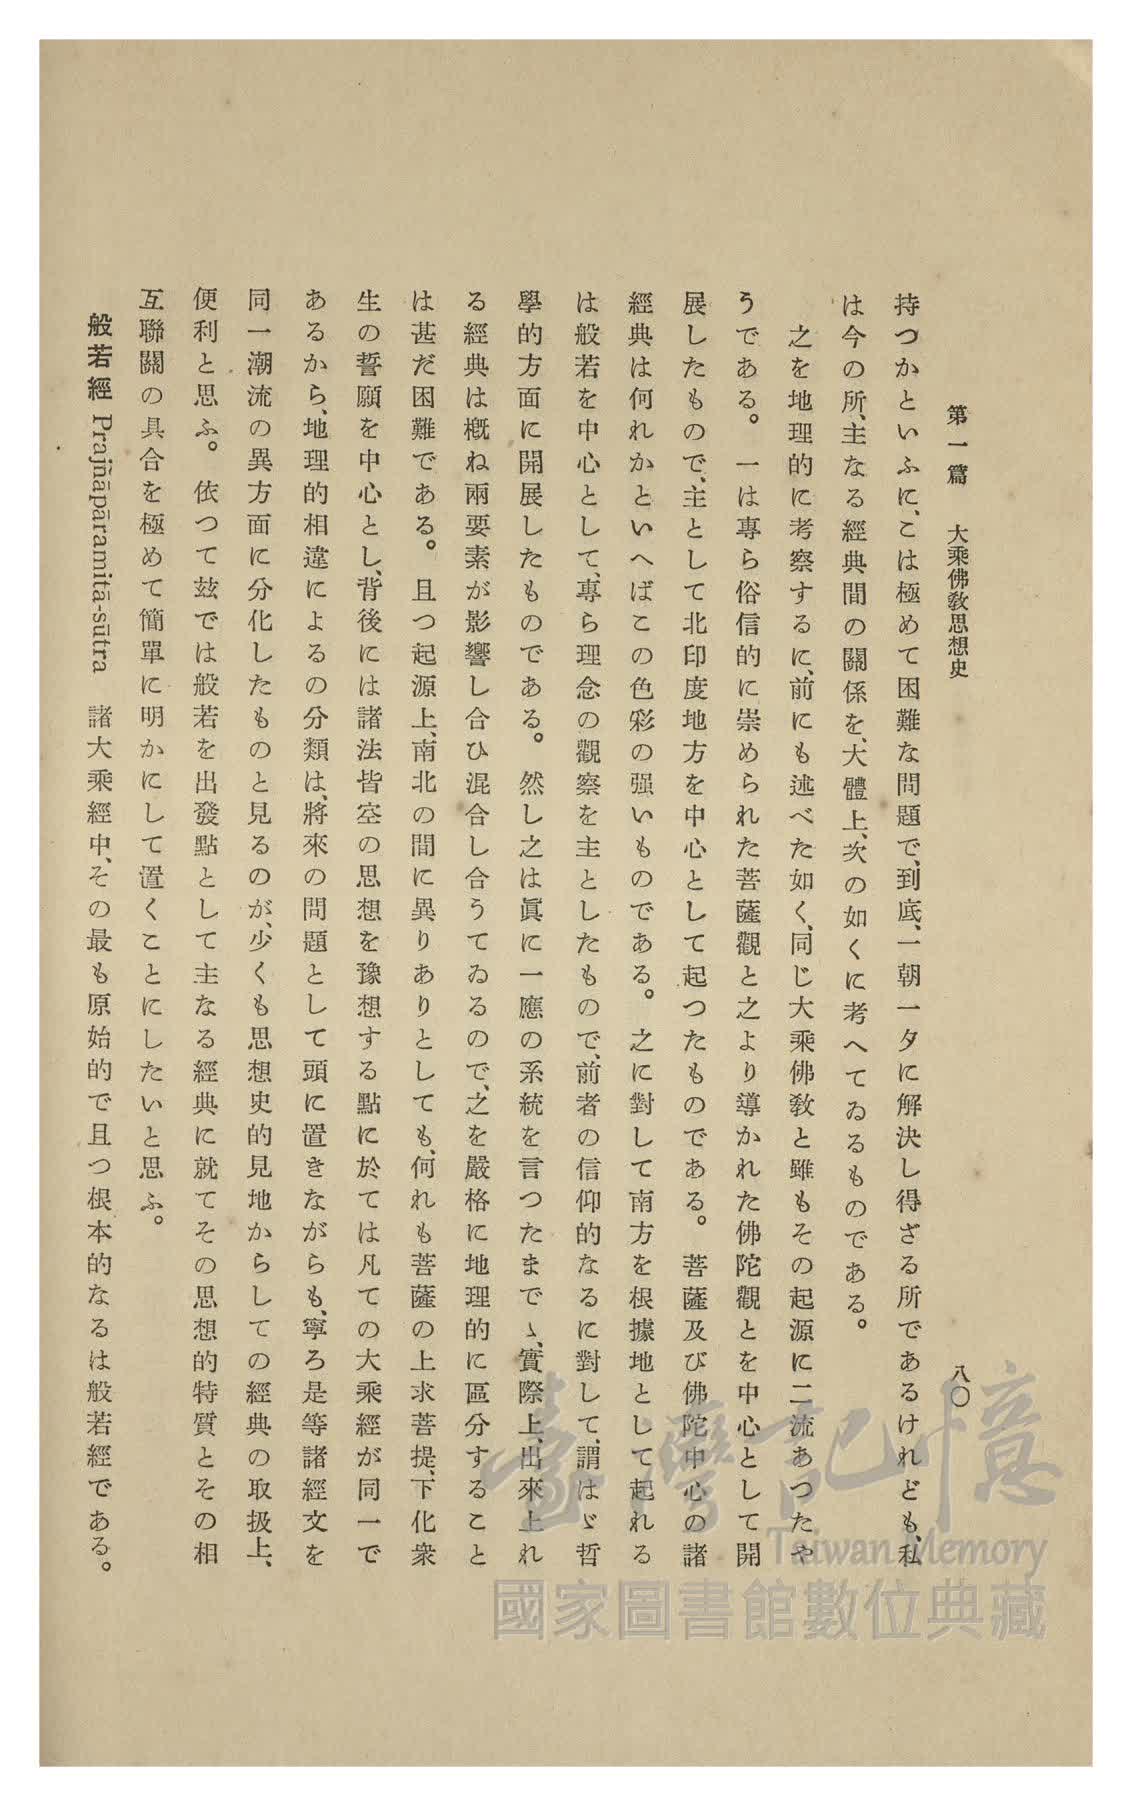 第一篇　大乘佛敎思想史
八〇
持つかといふに、こは極めて困難な問題で、到底、一朝一夕に解決し得ざる所であるけれども、私
は今の所、主なる經典間の關係を、大體上、次の如くに考へてゐるものである。
之を地理的に考察するに、前にも述べた如く、同じ大乘佛敎と雖もその起源に二流あつたや
うである。一は專ら俗信的に崇められた菩薩觀と之より導かれた佛陀觀とを中心として開
展したもので、主として北印度地方を中心として起つたものである。菩薩及び佛陀中心の諸
經典は何れかといへばこの色彩の强いものである。之に對して南方を根據地として起れる
は般若を中心として、專ら理念の觀察を主としたもので、前者の信仰的なるに對して、謂はゞ哲
學的方面に開展したものである。然し之は眞に一應の系統を言つたまでゝ、實際上、出來上れ
る經典は槪ね兩要素が影響し合ひ混合し合うてゐるので、之を嚴格に地理的に區分すること
は甚だ困難である。且つ起源上、南北の間に異りありとしても、何れも菩薩の上求菩提、下化衆
生の誓願を中心とし、背後には諸法皆空の思想を豫想する點に於ては凡ての大乘經が同一で
あるから、地理的相違によるの分類は、將來の問題として頭に置きながらも、寧ろ是等諸經文を
同一潮流の異方面に分化したものと見るのが、少くも思想史的見地からしての經典の取扱上、
便利と思ふ。依つて茲では般若を出發點として主なる經典に就てその思想的特質とその相
互聯關の具合を極めて簡單に明かにして置くことにしたいと思ふ。
般若經 Prajñāpāramitā-sūtra　諸大乘經中、その最も原始的で且つ根本的なるは般若經である。
臺灣記憶
Taiwan Memory
國家圖書館數位典藏